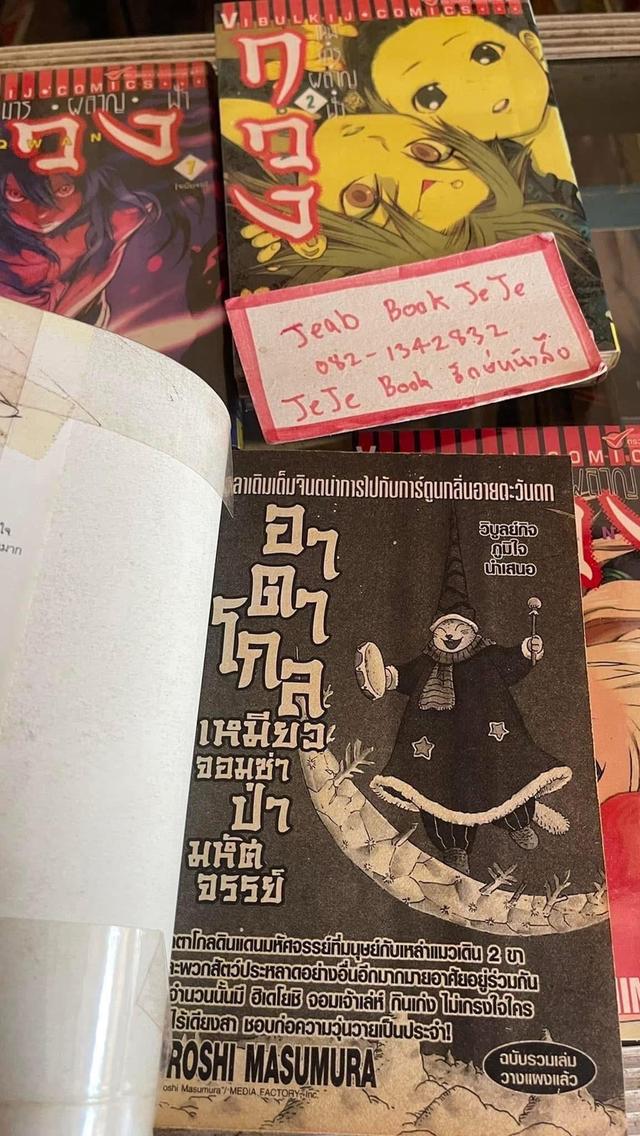 VIBULKIJ•COMICS...
กวง
2
IJ•COMICS...
มาร • ผลาญ • ฟ้า
วง
7
Jeab Book JeJe
082-1342832
JeJe Book
COMI
ลาเติมเต็มจินตนาการไปกับการ์ตูนกลิ่นอายตะวันตก
วิบูลย์กิจ
ภูมิใจ
นำเสนอ
อา
ตา
โกล
เหมียว
จอมซ่า
ป่า
มหัศ
จรรย์
ตาโกลดินแดนมหัศจรรย์ที่มนุษย์กับเหล่าแมวเดิน 2 ขา
ะพวกสัตว์ประหลาดอย่างอื่นอีกมากมายอาศัยอยู่ร่วมกัน
จำนวนนั้นมี ฮิเดโยชิ จอมเจ้าเล่ห์ กินเก่ง ไม่เกรงใจใคร
ไร้เดียงสา ชอบก่อความวุ่นวายเป็นประจำ!
ROSHI MASUMURA
oshi Masumura / MEDIA FACTORY, Inc.
ฉบับรวมเล่ม
วางแผงแล้ว
ใจ
มาก